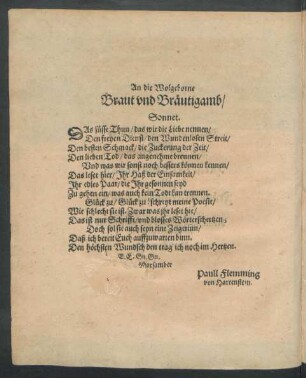 An die Wolgeborne
Braut vnd Bräutigamb/
Sonnet.
DAs süsse Thun/ das wir die Liebe nennen/
Den freyen Dienst/ den Wundenlosen Streit/
Den besten Schmack/ die Zuckerung der Zeit/
Den lieben Tod/ das angenehme brennen/
Vnd was wir sonst noch bessers können kennen/
Das leser hier/ Ihr Haß der Einsamkeit/
Ihr edles Paar/ die Ihr gesonnen seyd
Zu gehen ein/ was auch kein Tod kan trennen.
Glück zu/ Glück zu/ schreyt meine Poesie/
Wie schlecht sie ist. Zwar was ihr leset hie/
Das ist nur Schrifft/ vnd blosses Wörterschertzen;
Doch sol sie auch seyn eine Zeigerinn/
Daß ich bereit Euch auffzuwarten binn.
Den höchsten Wundsch den trag' ich noch im Hertzen.
E. E. Gn. Gn.
Paull Flemming
von Hartenstein.